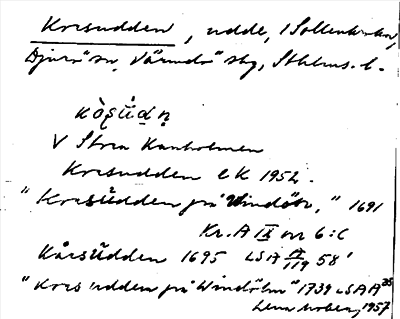 Korsudden, udde, i Sollenkroka,
Djurö sn, Värmdö skg, Sthlms. l.
V Stora Kanholmen
Korsudden ek 1952.
"Korsüdden på Windön," 1691
Kr. A IX nr 6:C
Kårsüdden 1695 LSA A/119 58'
"Kors udden på Windöhn" 1739 LSA A 35
1957